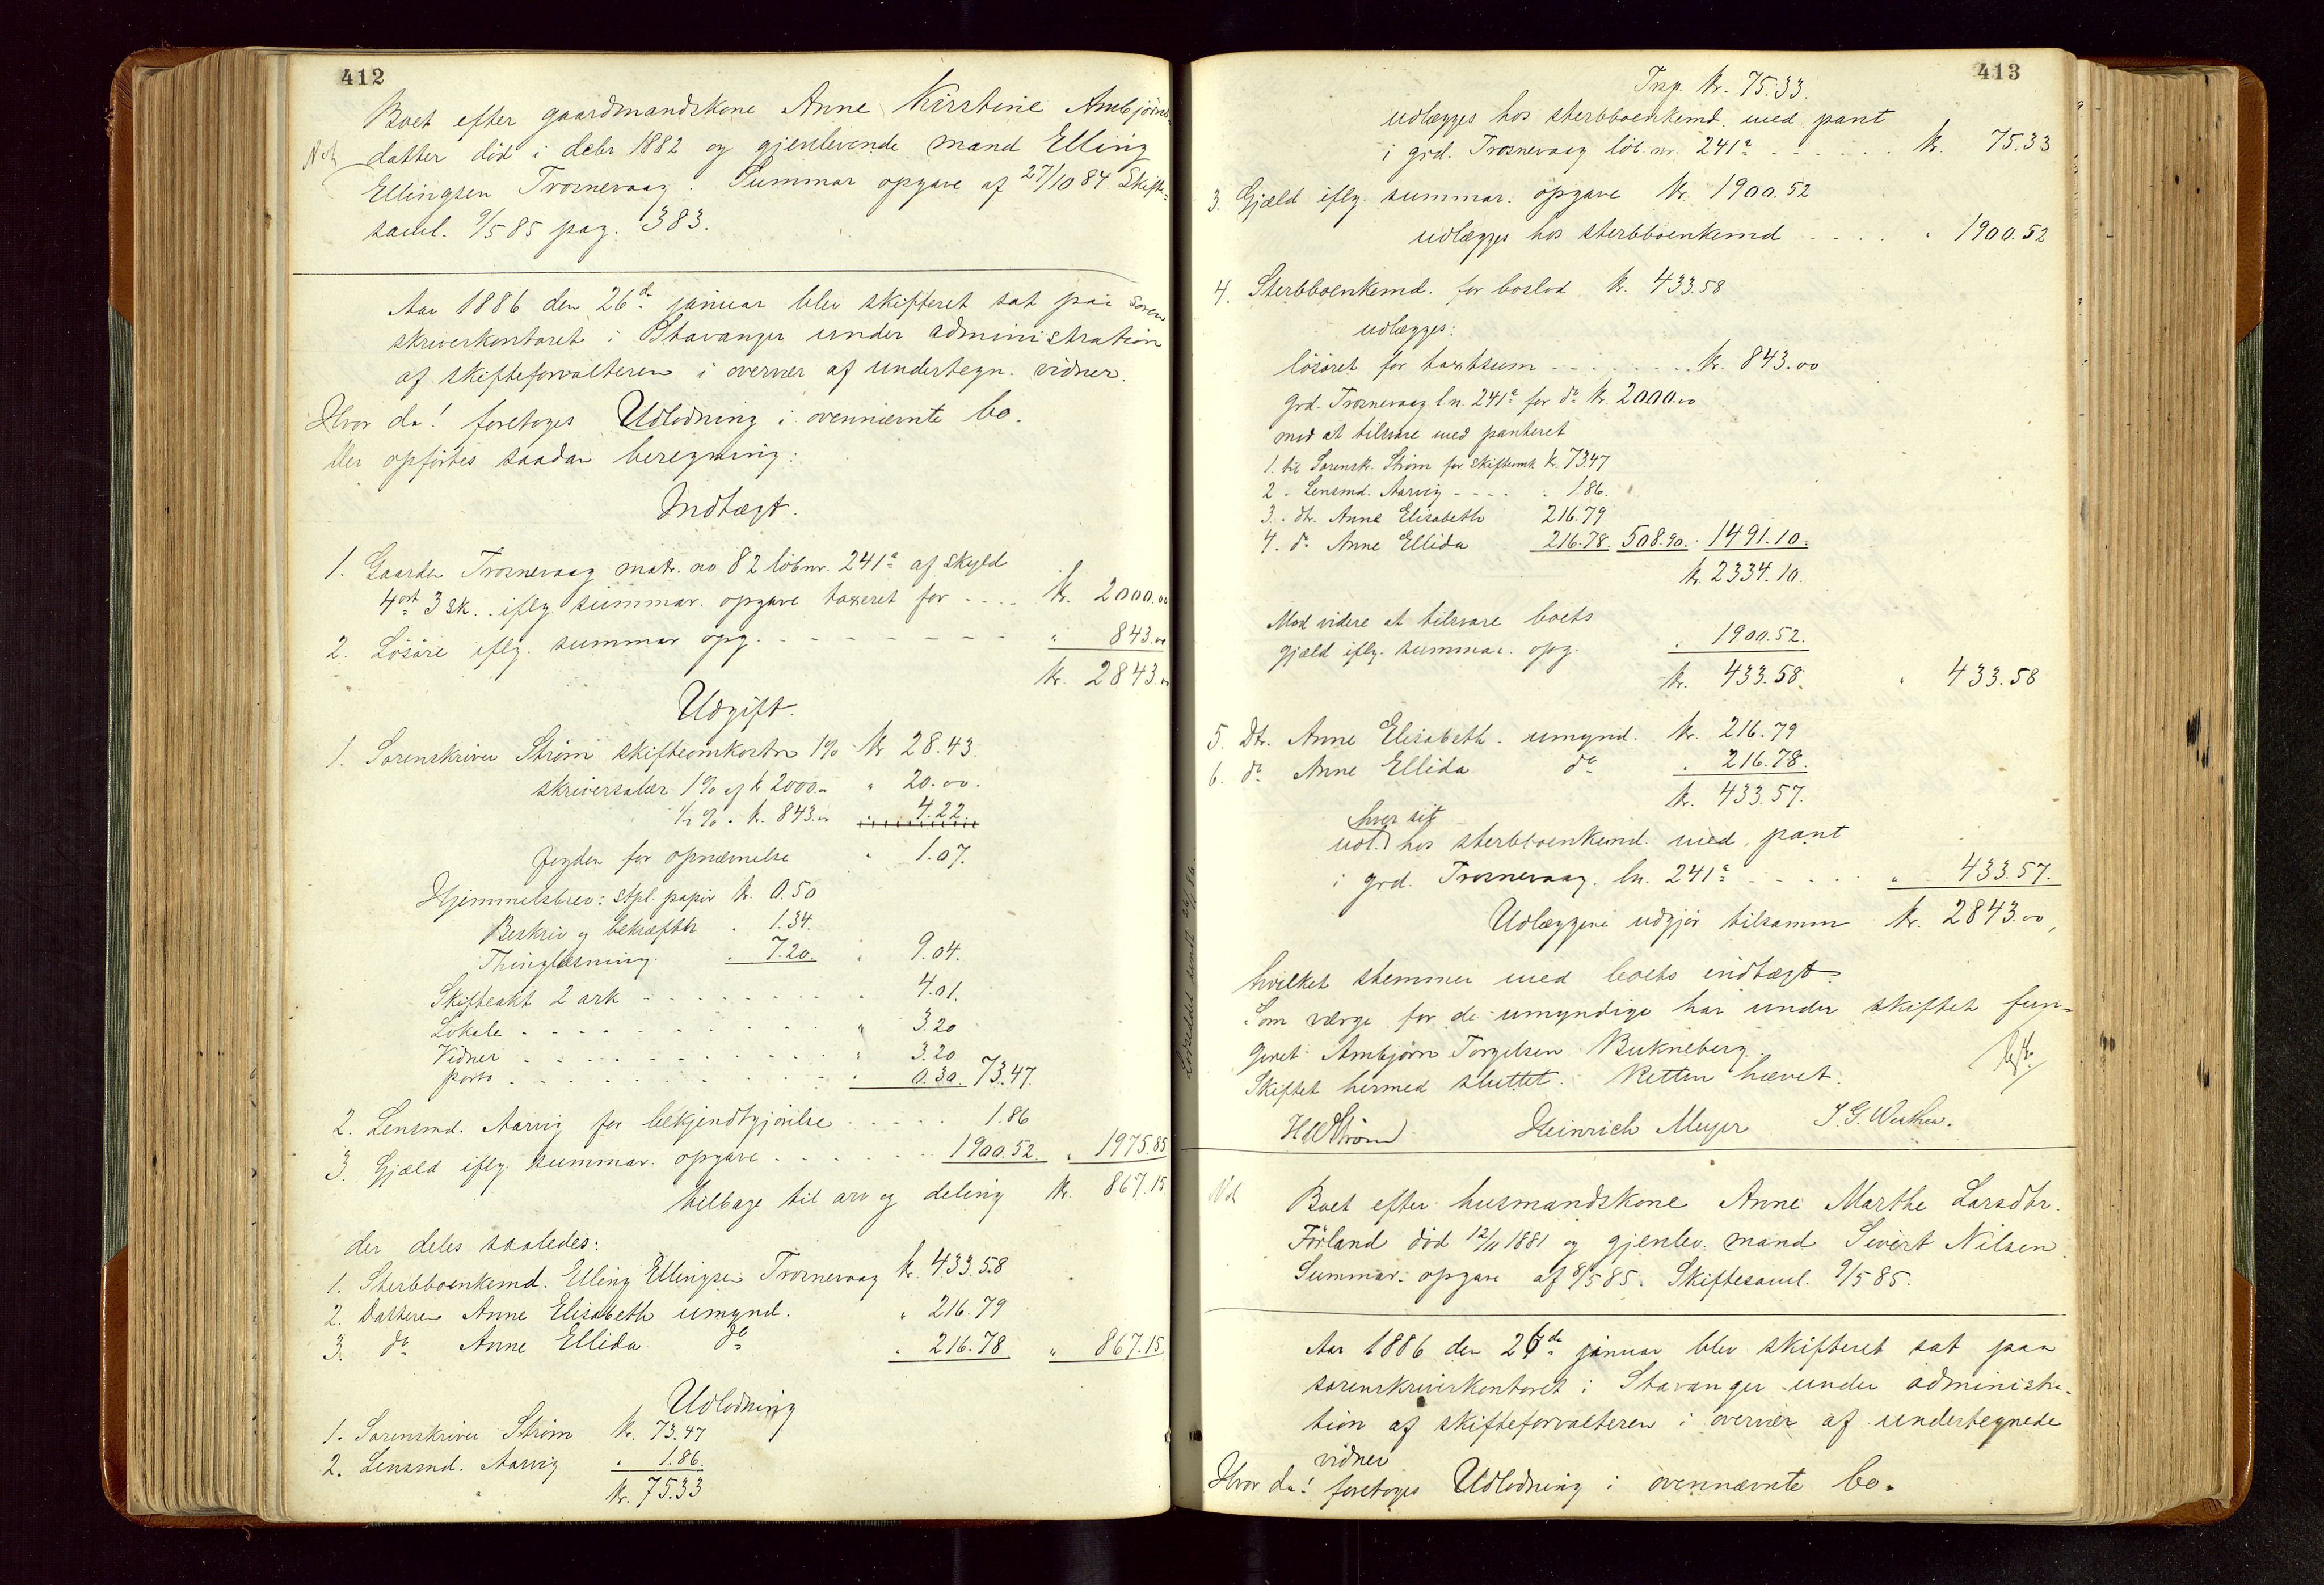 412
Boet efter gaardmandskone Anne Kirstine Ambjörns-
datter död i debr 1882 og gjenlevende mand Elling
Ellingsen Trosnevaag. Summar opgave af 27/10 84 Skifte-
saml. 9/5 85 pag. 383.
Aar 1886 den 26de januar blev skifteret sat paa soren
skriverkontoret i Stavanger under administration
af skifteforvalteren i overvær af undertegn. vidner.
Hvor da! foretoges Udlodning i ovennævnte bo.
Der opförtes saadan beregning:
Indtægt.
1. Gaarden Trosnevaag matr. no 82 löbnr. 241a af skyld
4 ort 3 sk. iflg. summar. opgave taxeret for .... kr. 2000.00
2. Lösöre iflg. summar opg. - - - - " 843.00
kr. 2843.00
Udgift.
1. Sorenskriver Ström skifteomkostn 1% kr 28.43.
skriversalær 1% af k 2000.- " 20.00.
1/2 % " kr. 843.00 " 4.22
fogden for opnævnelse " 1.07.
Hjemmelsbrev: stpl. papir kr. 0.50
Beskriv og bekræftls " 1.34.
Thinglæsning. " 7.20. " 9.04.
Skifteakt 2 ark - - - - " 4.01.
Lokale - - - - " 3.20
Vidner - - - - " 3.20
porto - - - - " 0.30. 73.47.
2. Lensmd. Aarvig for bekjendtgjörelse - - - - 1.86
3. Gjæld iflg. summar. opgave - - - - 1900.52. " 1975.85
tilbage til arv og deling kr. 867.15
der deles saaledes:
1. Sterbboenkemd. Elling Ellingsen Trosnevaag kr. 433.58
2. Datteren Anne Elisabeth umynd. " 216.79
3. do Anne Ellida do " 216.78 " 867.15
Udlodning
1. Sorenskriver Ström kr. 73.47
2. Lensmd. Aarvig " 1.86.
kr. 75.33
413
Tsp. kr. 75.33.
udlægges hos sterbboenkemd. med pant
i grd. Trosnevaag löb.nr. 241a - - - - kr. 75.33
3. Gjæld iflg. summar. opgave kr. 1900.52
udlægges hos sterbboenkemd . . . . " 1900.52
4. Sterbboenkemd. for boslod k. 433.58
udlægges:
lösöret for taxtsum - - - - kr. 843.00
grd. Trosnevaag ln. 241a for do kr. 2000.00
mod at tilsvare med panteret
1. til Sorensk. Ström for skifteomk. kr. 73.47
2 " Lensmd. Aarvig - - - - " 1.86.
3. " dtr. Anne Elisabeth 216.79
4. do Anne Ellida 216.78. 508.90. " 1491.10.
kr 2334.10.
Mod videre at tilsvare boets
gjæld iflg. summar. opg. " 1900.52.
kr. 433.58. " 433.58
5. Dtr. Anne Elisabeth umynd. kr. 216.79
6. do Anne Ellida do " 216.78.
kr. 433.57.
hver sit
udl. hos sterbboenkemd. med pant
i grd. Trosnevaag. ln. 241a - - - - " 433.57.
Udlæggene udgjör tilsamm kr. 2843.00,
hvilket stemmer med boets indtægt.
Som værge for de umyndige har under skiftet fun-
geret Ambjörn Torgilsen Bukneberg.
Skiftet hermed sluttet. Retten hævet.
Ström Heinrich Meyer
Boet efter husmandskone Anne Marthe Larsdtr.
Förland död 12/11 1881 og gjenlev. mand Sivert Nilsen
Summar. opgave af 8/5 85. Skiftesaml. 9/5 85.
Aar 1886 den 26de januar blev skifteret sat paa
sorenskriverkontoret i Stavanger under administra-
tion af skifteforvalteren i overvær af undertegnede
vidner
Hvor da! foretoges Udlodning i ovennævnte bo.